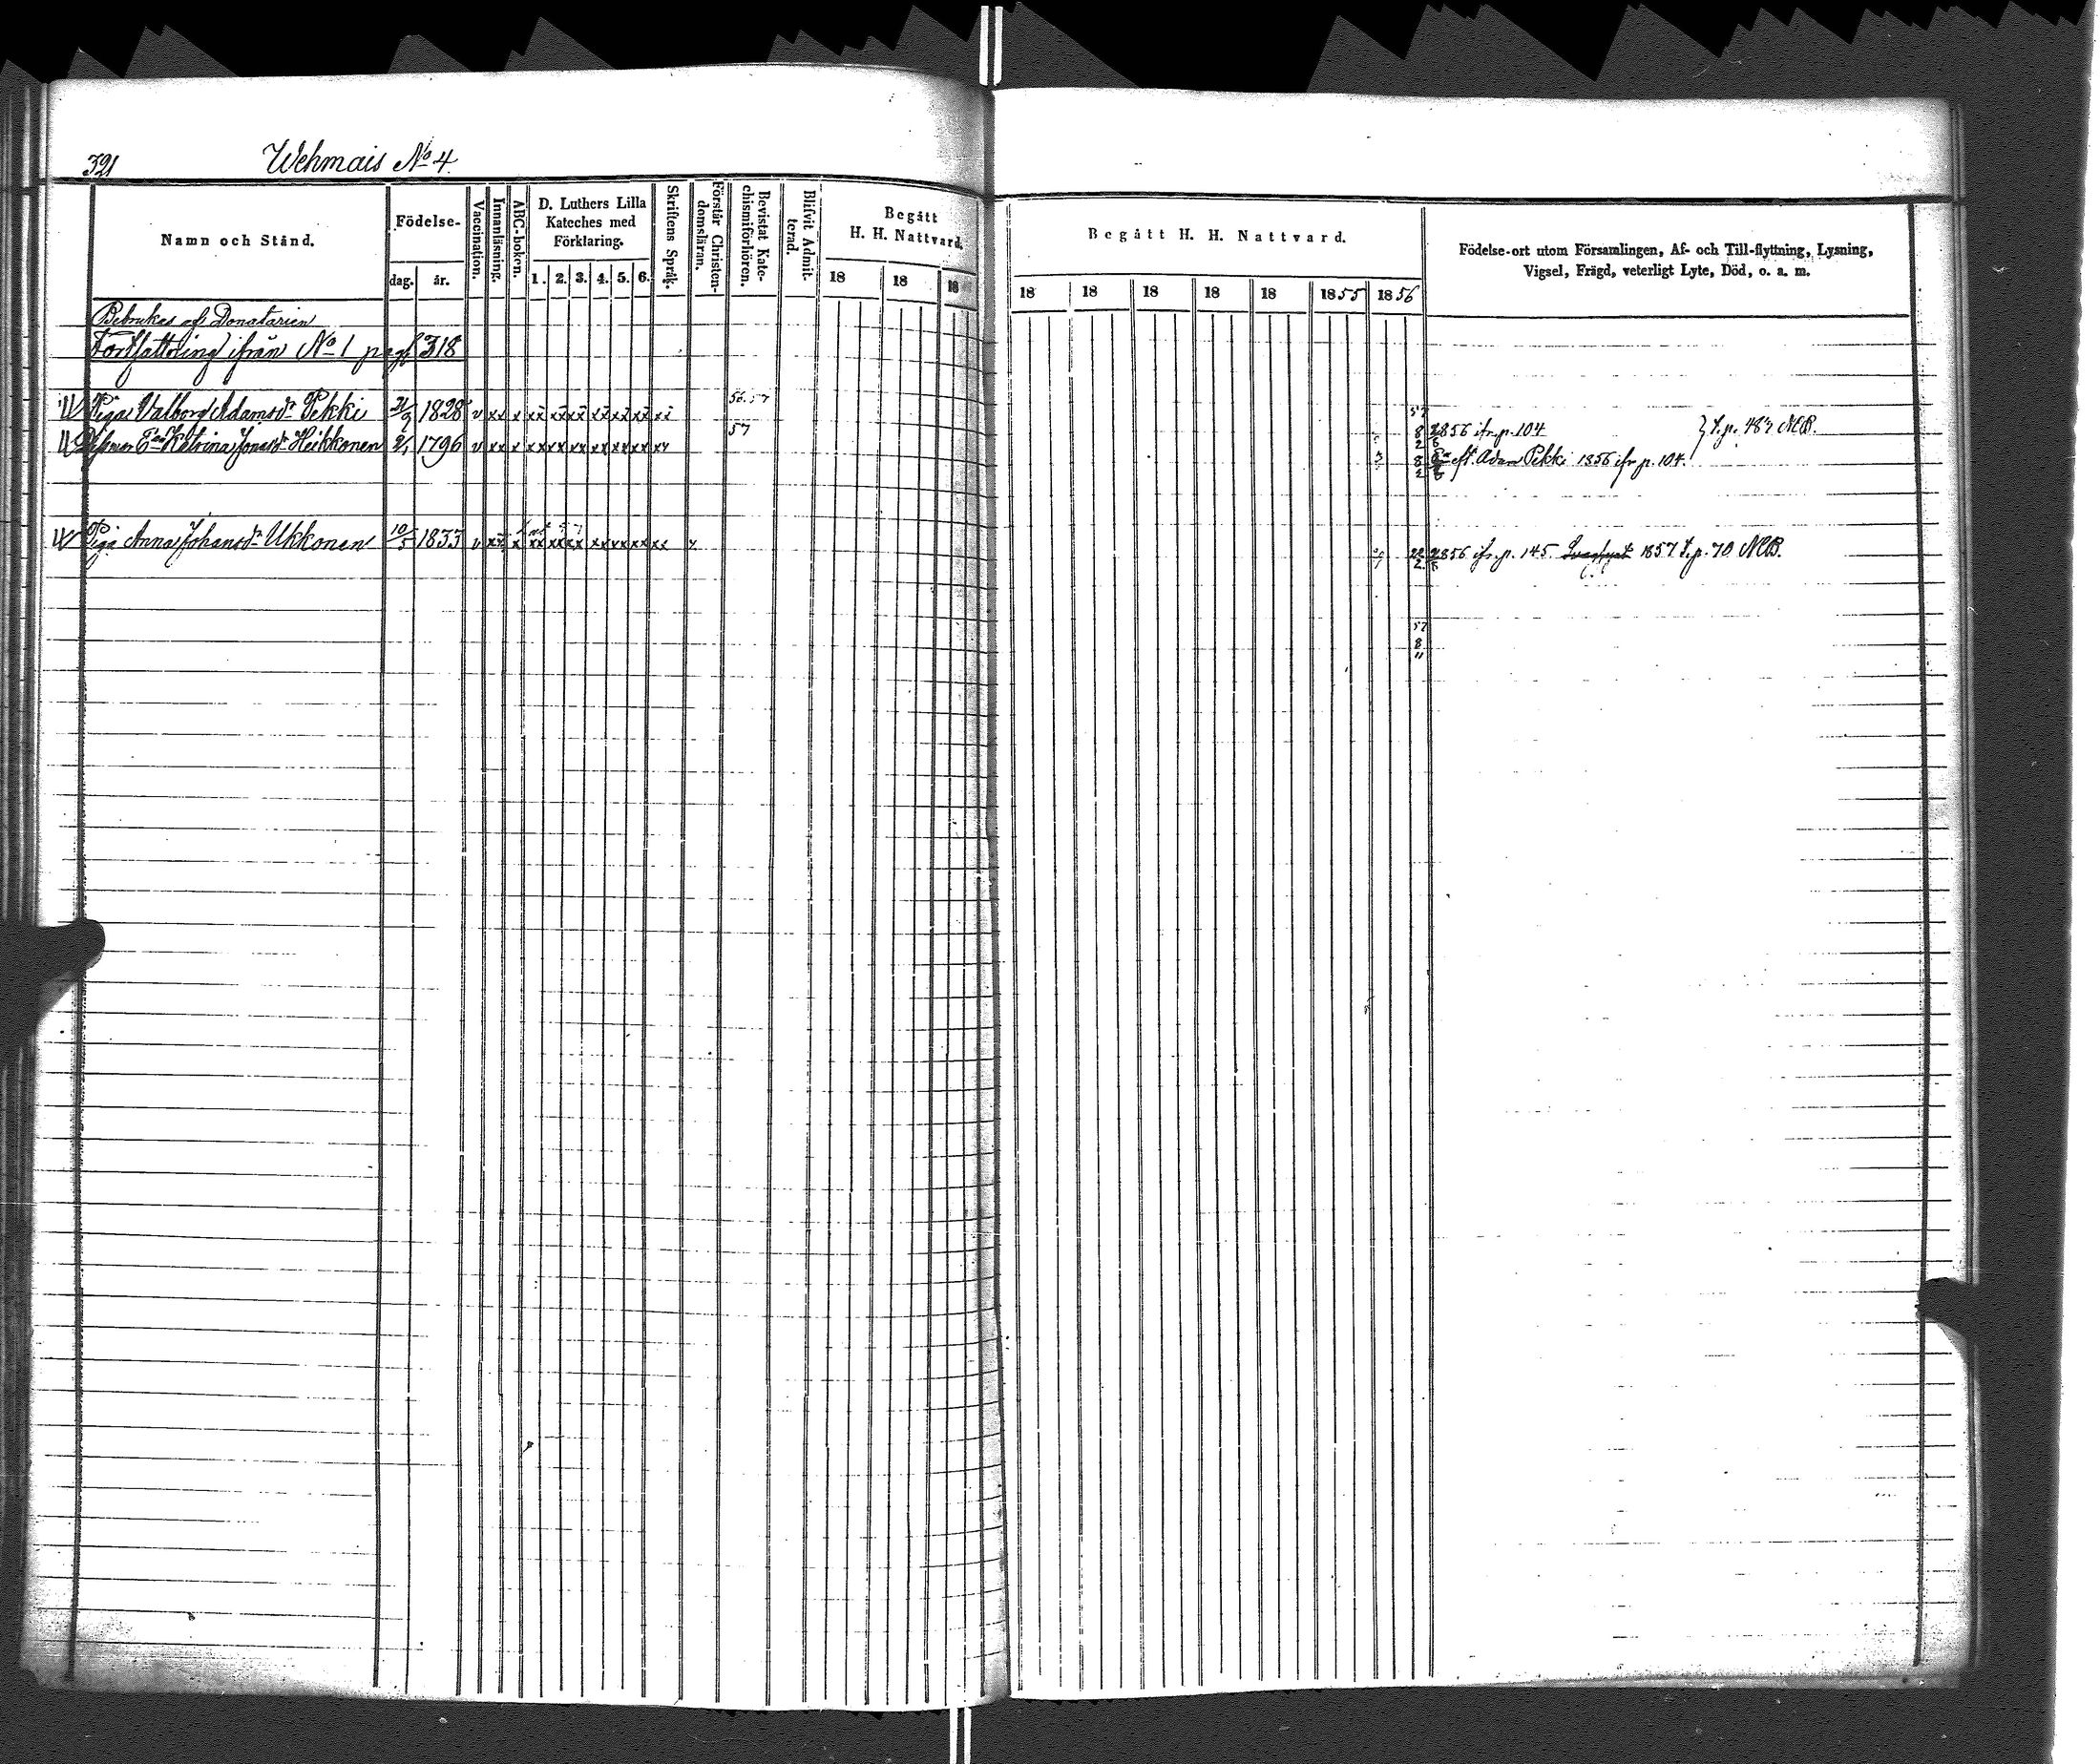 321 Wehmais No 4.
Namn och Stånd.
Födelse-
dag. år.
Vaccination.
Innanläsning.
ABC-boken.
D. Luthers Lilla
Kateches med
Förklaring.
1. 2. 3. 4. 5. 6.
Skriftens Språk.
Förstår Christen-
domsläran.
Bevistat Kate-
chismiförhören.
Blifvit Admit-
terad.
Begått
H. H. Nattvard.
18 18 18
Begått H. H. Nattvard.
18 18 18 18 18 1855 1856
Födelse-ort utom Församlingen, Af- och Till-flyttning, Lysning,
Vigsel, Frägd, veterligt Lyte, Död, o. a. m.
Bebrukas af Donatarien
Fortsättning ifrån No 1 pag 318
56.57
Piga Valborg Adamsdr Pekki 1828 v xx x xx xx xx xx xx xx xx
57
1856 ifr. p. 104
57
Enka Katrina Jonasdr Heikkonen 1796 v xx x xx xx xx xx xx xx xx
Ea eft. Adam Pekki 1856 ifr p. 104.
Piga Anna Johansdr Ukkonen 10/5 1833 v xx x xx xx xx xx xx xx xx
1856 ifr. p. 145. 1857 t. p. 70 NB.
57
8
"